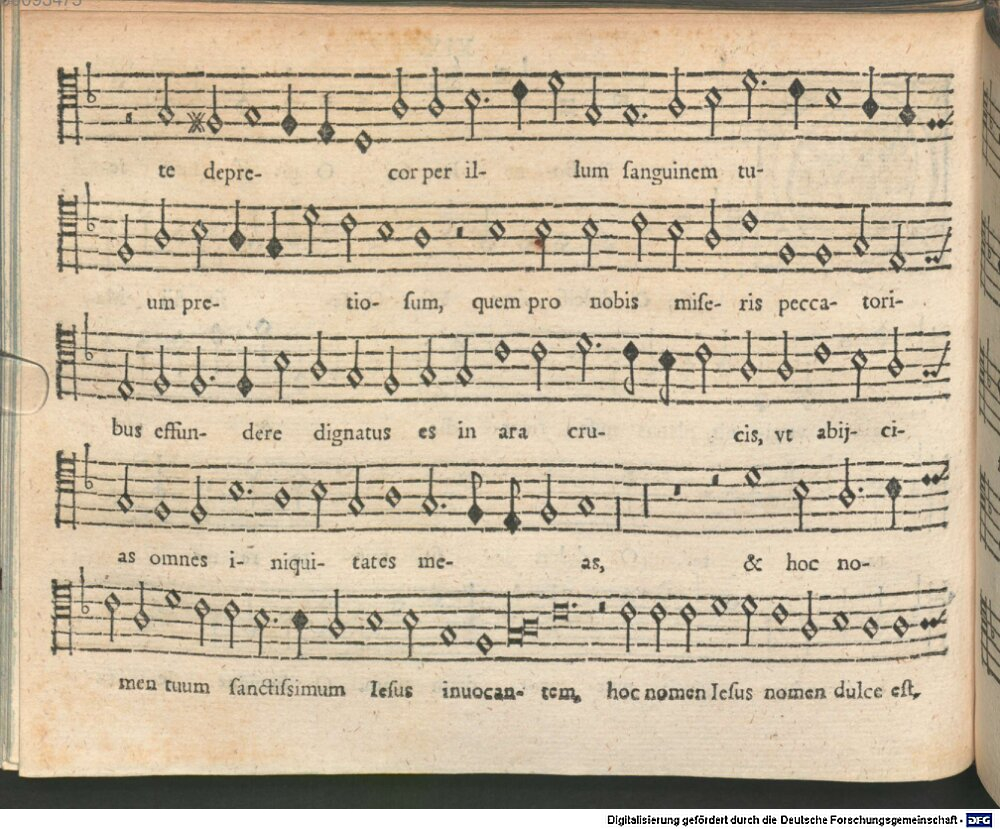 te depre- cor per il- lum sanguinem tu-
um pre- tio- sum, quem pro nobis mise- ris pecca- tori-
bus effun- dere dignatus es in ara cru- cis, vt abij- ci-
as omnes i- niqui- tates me- as, & hoc no-
men tuum sanctissimum Iesus inuocan- tem, hoc nomen Iesus nomen dulce est,
Digitalisierung gefördert durch die Deutsche Forschungsgemeinschaft - DFG